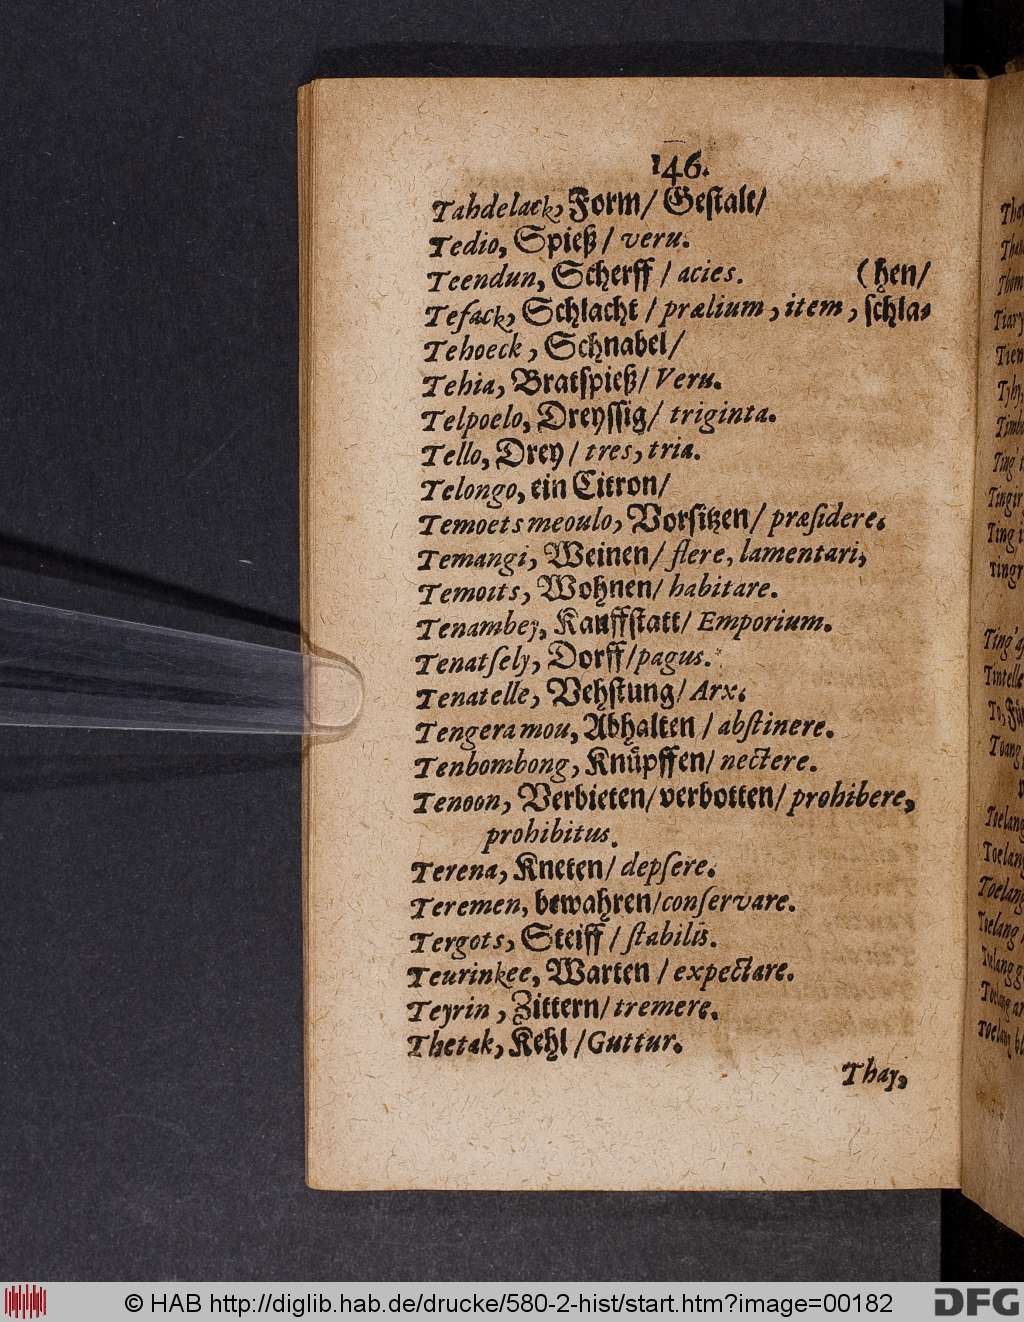 146.
Tahdelack, Form/ Gestalt/
Tedio, Spieß/ veru.
Teendun, Scherff / acies. (hen/
Tefack, Schlacht / prælium, item, schla-
Tehoeck, Schnabel/
Tehia, Bratspieß/ Veru.
Telpoelo, Dreyssig/ triginta.
Tello, Drey / tres, tria.
Telongo, ein Citron/
Temoets meoulo, Vorsitzen/ præsidere.
Temangi, Weinen/ flere, lamentari,
Temoits, Wohnen/ habitare.
Tenambey, Kauffstatt/ Emporium.
Tenatsely, Dorff/pagus.
Tenatelle, Vehstung/ Arx.
Tengeramou, Abhalten / abstinere.
Tenbombong, Knüpffen/ nectere.
Tenoon, Verbieten/ verbotten/ prohibere,
prohibitus.
Terena, Kneten/ depsere.
Teremen, bewahren/conservare.
Tergots, Steiff / stabilis.
Teurinkee, Warten / expectare.
Teyrin, Zittern/ tremere.
Thetak, Kehl /Guttur.
Thay,
© HAB http://diglib.hab.de/drucke/580-2-hist/start.htm?image=00182
DFG